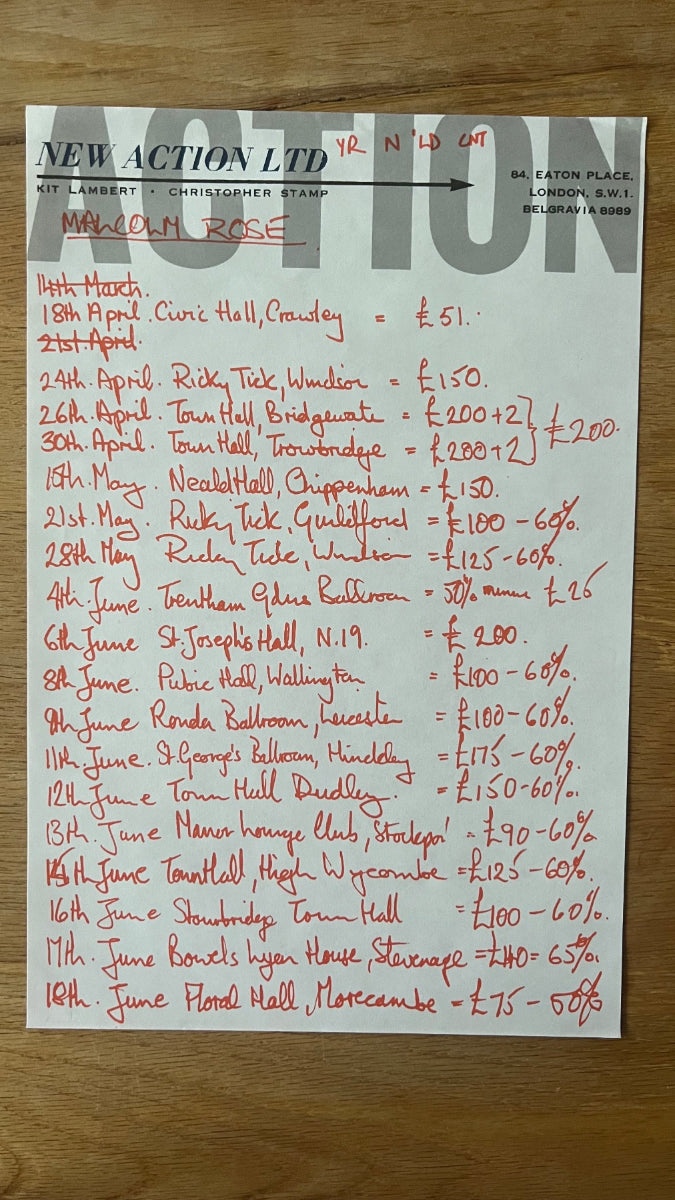 ACTION
YR N 'LD CNT
NEW ACTION LTD
KIT LAMBERT · CHRISTOPHER STAMP
84, EATON PLACE,
LONDON, S.W.1.
BELGRAVIA 8989
MALCOLM ROSE
14th March.
18th April. Civic Hall, Crawley = £51.
21st. April.
24th. April. Ricky Tick, Windsor = £150.
26th. April. Town Hall, Bridgewate = £200+2
30th. April. Town Hall, Trowbridge = £200+2
£200.
May. Neald Hall, Chippenham = £150.
21st. May. Ricky Tick, Guildford = £100 - 60%.
28th May Ricky Tick, Windsor = £125 - 60%.
4th. June. Trentham Gdns Ballroom = 50% £26
6th June St. Joseph's Hall, N.19. = £200.
8th June. Pubic Hall, Wallington = £100 - 60%.
9th June Ronda Ballroom, Leicester = £100 - 60%.
11th. June. St. George's Ballroom, Hinckley = £175 - 60%.
12th June Town Hall Dudley. = £150 - 60%.
13th. June Manor Lounge Club, Stockpo' = £90 - 60%
June Town Hall, High Wycombe = £125 - 60%.
16th June Stourbridge Town Hall = £100 - 60%.
17th. June Bowels Lyen House, Stevenage = = 65%.
18th. June Floral Hall, Morecambe = £75 - 50%